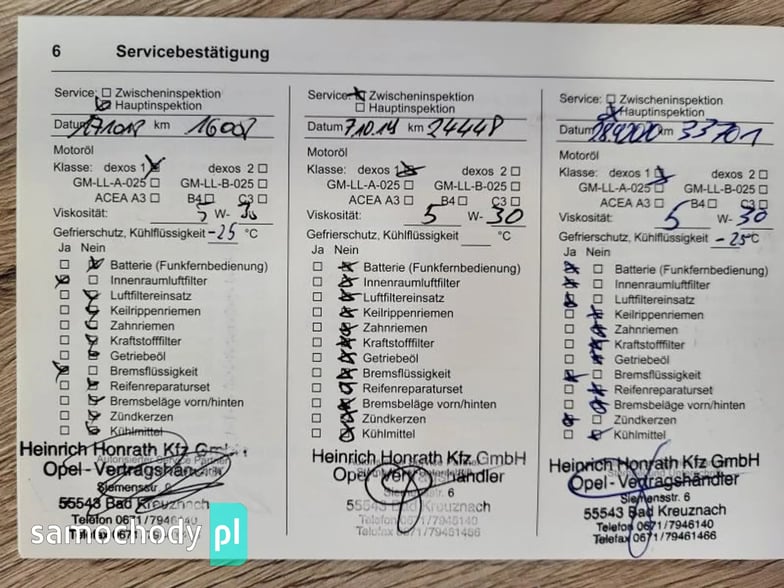 6 Servicebestätigung
Service: Zwischeninspektion
Hauptinspektion
Datum km
Motoröl
Klasse: dexos 1 dexos 2
GM-LL-A-025 GM-LL-B-025
ACEA A3 B4 C3
Viskosität: 5 W- 30
Gefrierschutz, Kühlflüssigkeit -25 °C
Ja Nein
Batterie (Funkfernbedienung)
Innenraumluftfilter
Luftfiltereinsatz
Keilrippenriemen
Zahnriemen
Kraftstofffilter
Getriebeöl
Bremsflüssigkeit
Reifenreparaturset
Bremsbeläge vorn/hinten
Zündkerzen
Kühlmittel
Heinrich Honrath Kfz
Opel - Vertragshändler
Siemensstr.
55543 Bad Kreuznach
Telefon 0671/7946140
Service: Zwischeninspektion
Hauptinspektion
Datum 7.10.19 km 24448
Motoröl
Klasse: dexos 1 dexos 2
GM-LL-A-025 GM-LL-B-025
ACEA A3 B4 C3
Viskosität: 5 W- 30
Gefrierschutz, Kühlflüssigkeit °C
Ja Nein
Batterie (Funkfernbedienung)
Innenraumluftfilter
Luftfiltereinsatz
Keilrippenriemen
Zahnriemen
Kraftstofffilter
Getriebeöl
Bremsflüssigkeit
Reifenreparaturset
Bremsbeläge vorn/hinten
Zündkerzen
Kühlmittel
Heinrich Honrath Kfz GmbH
Opel - Vertragshändler
Siemensstr. 6
55543 Bad Kreuznach
Telefon 0671/7946140
Telefax 0671/79461466
Service: Zwischeninspektion
Hauptinspektion
Datum 28.9.2020 km 33701
Motoröl
Klasse: dexos 1 dexos 2
GM-LL-A-025 GM-LL-B-025
ACEA A3 B4 C3
Viskosität: 5 W- 30
Gefrierschutz, Kühlflüssigkeit -25 °C
Ja Nein
Batterie (Funkfernbedienung)
Innenraumluftfilter
Luftfiltereinsatz
Keilrippenriemen
Zahnriemen
Kraftstofffilter
Getriebeöl
Bremsflüssigkeit
Reifenreparaturset
Bremsbeläge vorn/hinten
Zündkerzen
Kühlmittel
Heinrich Honrath Kfz GmbH
Opel - Vertragshändler
Siemensstr. 6
55543 Bad Kreuznach
Telefon 0671/7946140
Telefax 0671/79461466
samochody pl